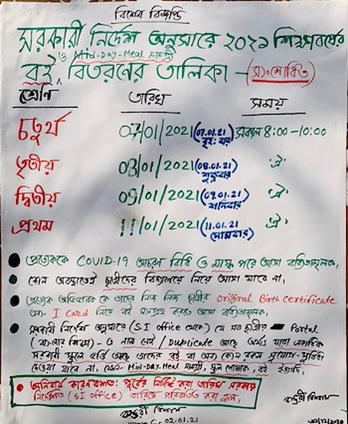 বিশেষ বিজ্ঞপ্তি
সরকারী নির্দেশ অনুসারে ২০২১ শিক্ষাবর্ষের
ও Mid-Day-Meal সামগ্রী
বই বিতরনের তালিকা - (সংশোধিত)
শ্রেণি তারিখ সময়
চতুর্থ 07/01/2021 (07.01.21) সকাল 8:00 -10:00
তৃতীয় 08/01/2021 (08.01.21 শুক্রবার) ঐ
দ্বিতীয় 09/01/2021 (09.01.21 শনিবার) ঐ
প্রথম 11/01/2021 (11.01.21 সোমবার) ঐ
প্রত্যেককে COVID-19 আচরণ বিধি ও মাস্ক পরে আসা বাধ্যতামূলক,
কোন অবস্থাতেই ছাত্রীদের বিদ্যালয়ে নিয়ে আসা যাবে না,
প্রত্যেক অভিভাবক কে তাদের নিজ নিজ ছাত্রীর Original Birth Certificate
এবং I Card নিয়ে বই সংগ্রহ করতে আসা বাধ্যতামূলক,
সরকারী নির্দেশ অনুসারে (S.I office থেকে) যে সব ছাত্রীর Portal
(বাংলার শিক্ষা) - এ নাম নেই / Duplicate আছে
সরকারী স্কুলে ভর্তি আছে তাদের বই বা অন্য কোন রকম সুযোগ-সুবিধা
দেওয়া যাবে না, Mid-Day-Meal সামগ্রী, স্কুল পোশাক, বই ইত্যাদি,
অনিবার্য কারণবশতঃ পূর্বের নির্দিষ্ট করা তারিখ সরকারি
নির্দেশে (SI office) তারিখ পরিবর্তন করা হল,
02.01.21